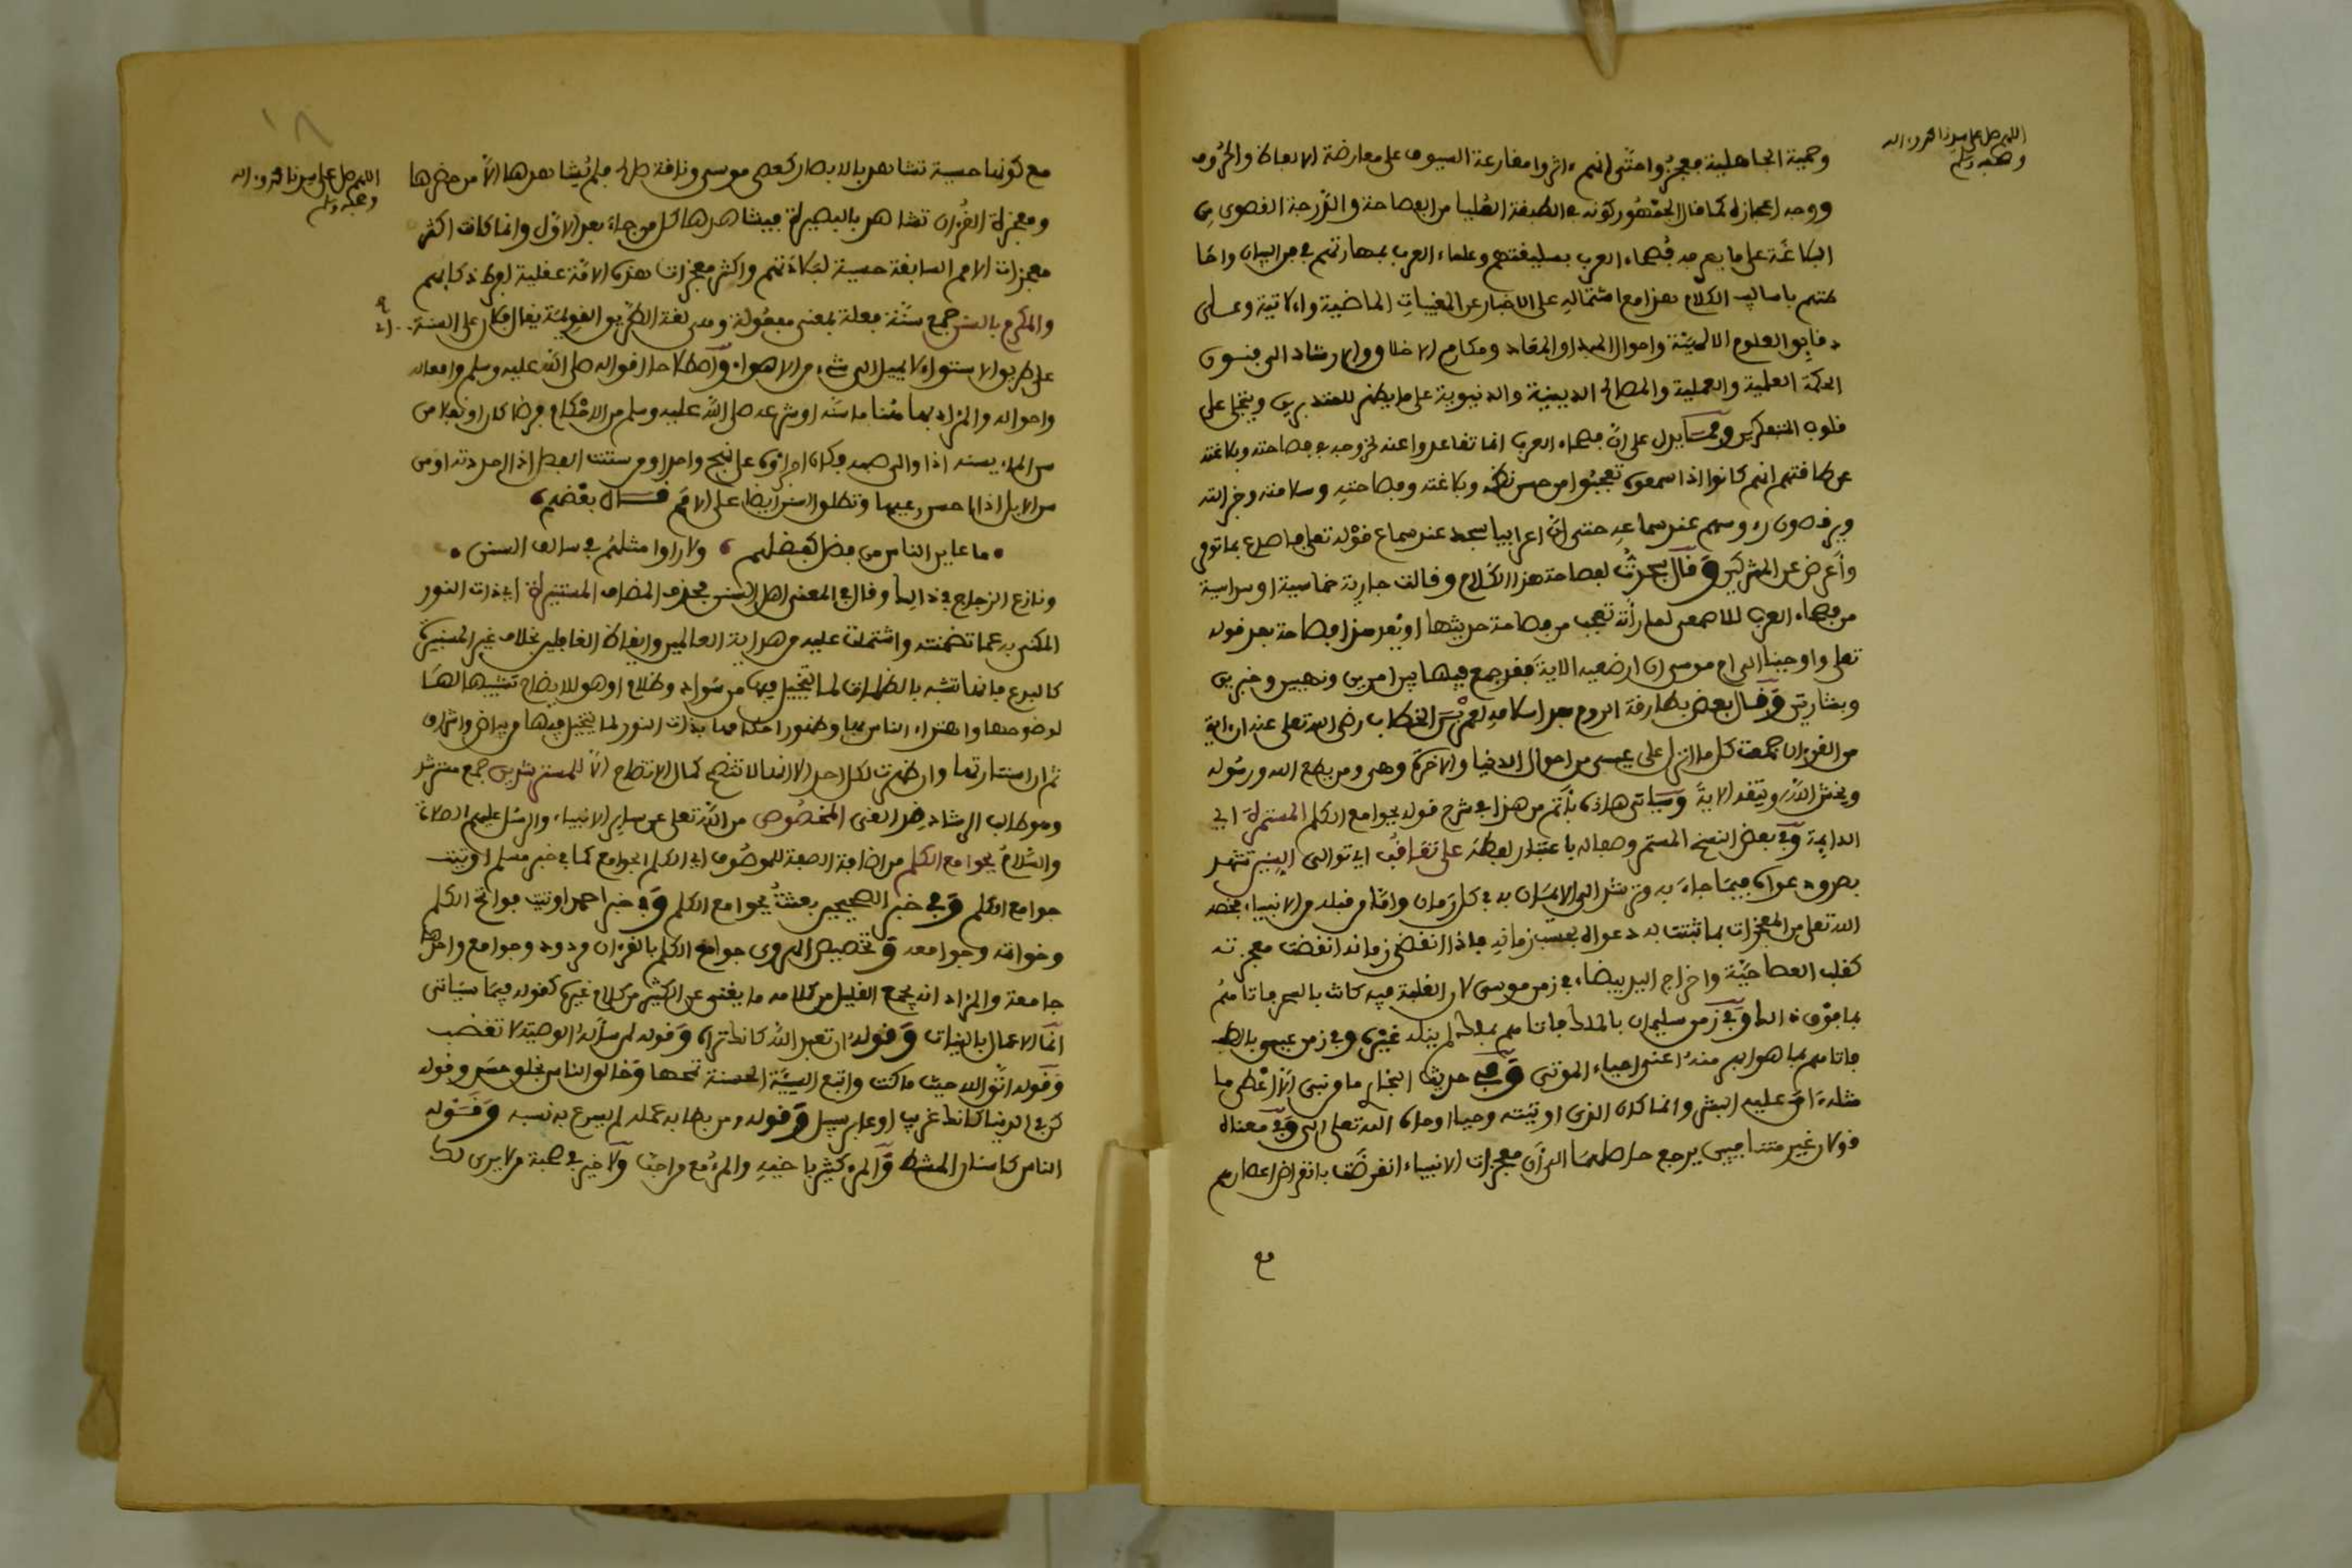 اللهم صل على سيدنا محمد وءاله
وصحبه وسلم
وحمية الجاهلية فعجزوا حتى انهم ءاثروا مقارعة السيوف على معارضة الالفاظ والحروف
ووجه اعجازه كما قال الجمهور كونه في الطبقة العليا من الفصاحة والدرجة القصوى من
البلاغة على ما يعرفه فصحاء العرب بسليقتهم وعلماء العرب بمهارتهم في فن البيان واحا
طتهم باساليب الكلام هذا مع اشتماله على الاخبار عن المغيبات الماضية والاتية وعلى
دقايق العلوم الالهية واحوال المبدا والمعاد ومكارم الاخلاق والارشاد الى فنون
الحكمة العلمية والعملية والمصالح الدينية والدنيوية على ما يظهر للمتدبرين ويتجلى على
قلوب المتفكرين ومما يدل على ان فصحاء العرب انما تقاعدوا عنه لخروجه في فصاحته وبلاغته
عن طاقتهم انهم كانوا اذا سمعوه تعجبوا من حسن نظمه وبلاغته وفصاحته وسلامته وجزالته
ويرقصون رءوسهم عند سماعه حتى ان اعرابيا سجد عند سماع قوله تعلى فاصدع بما تومر
وأعرض عن المشركين وقال سجدت لفصاحة هذا الكلام وقالت جارية خماسية او سداسية
من فصحاء العرب للاصمعي لما رأته تعجب من فصاحة حديثها اويعد هذا فصاحة بعد قوله
تعلى واوحينا الى ام موسى ان ارضعيه الاية فقد جمع فيها بين امرين ونهيين وخبرين
وبشارتين وقال بعض بطارقة الروم بعد اسلامه لعمر بن الخطاب رضي الله تعلى عنه ان ءاية
من القرءان جمعت كل ما انزل على عيسى من احوال الدنيا والاخرة وهي ومن يطع الله ورسوله
ويخش الله ويتقه الاية وسياتي هذا بأتم من هذا في شرح قوله بجوامع الكلم المستمرة اي
الدايمة وفي بعض النسخ المستمر وصفا له باعتبار لفظه على تعاقب اي توالي السنين تشهد
بصدق دعواه فيما جاء به وترشد الى الايمان به في كل زمان واما من قبله من الانبياء فخصه
الله تعلى من المعجزات بما تثبت به دعواه بحسب زمانه فاذا انقضى زمانه انقضت معجزته
كقلب العصا حية واخراج اليد بيضاء في زمن موسى لان الغلبة فيه كانت بالسحر فاتاهم
بما فوقه وفي زمن سليمان بالملك فاتاهم بملك لم ينله غيره وفي زمن عيسى بالطب
فاتاهم بما هو اهم منه اعني احياء الموتى وفي حديث البخاري ما من نبي الا اعطي ما
مثله ءامن عليه البشر وانما كان الذي اوتيته وحيا اوحاه الله تعلى الي وفي معناه
قولان غير متنافيين يرجع حاصلهما الى ان معجزات الانبياء انقرضت بانقراض اعصارهم
مع
١٨
اللهم صل على سيدنا محمد وءاله
وصحبه وسلم
مع كونها حسية تشاهد بالابصار كعصى موسى وناقة صالح فلم يشاهدها الا من حضرها
ومعجزة القرءان تشاهد بالبصيرة فيشاهدها كل من جاء بعد الاول وانما كانت اكثر
معجزات الامم السابقة حسية لبلادتهم واكثر معجزات هذه الامة عقلية لفرط ذكايهم
والمكرم بالسنن جمع سنة فعلة بمعنى مفعولة وهي لغة الطريق القويمة يقال فلان على السنة
على طريق الاستواء لا يميل الى شيء من الاهواء واصطلاحا اقواله صلى الله عليه وسلم وافعاله
واحواله والمراد بها هنا ما سنه او شرعه صلى الله عليه وسلم من الاحكام فرضا كان او نفلا من
سن الماء يسنه اذا والى صبه فكان اجراؤه على نهج واحد او من سننت النصل اذا حددته او من
سن الابل اذا احسن رعيها وتطلق السنن ايضا على الامم قال بعضهم
ما عاين الناس من فضل كفضلهم ولا راوا مثلهم في سالف السنن
ونازع الزجاج في ذلك وقال في المعنى اهل السنن فحذف المضاف المستنيرة اي ذات النور
المكنى به عما تضمنته واشتملت عليه من هداية العالمين وايقاظ الغافلين بخلاف غير المستنيرة
كالبدع فانها تشبه بالظلمات لما يتخيل فيها من سواد وظلام او هو للايضاح تشبيها لها
لوضوحها واهتداء الناس بها وظهور احكامها بذات النور لما يتخيل فيها من بياض واشراق
ثم ان استنارتها وان ظهرت لكل احد الا انها لا تتضح كمال الاتضاح الا للمسترشدين جمع مسترشد
وهو طالب الرشاد ضد الغي المخصوص من الله تعلى عن ساير الانبياء والرسل عليهم الصلاة
والسلام بجوامع الكلم من اضافة الصفة للموصوف اي الكلم الجوامع كما في خبر مسلم اوتيت
جوامع الكلم وفي خبر الصحيحين بعثت بجوامع الكلم وفي خبر احمد اوتيت فواتح الكلم
وخواتمه وجوامعه وتخصيص الهروي جوامع الكلم بالقرءان مردود وجوامع واحدها
جامعة والمراد انه يجمع القليل من كلامه ما يغني عن الكثير من كلام غيره كقوله فيما سياتي
انما الاعمال بالنيات وقوله ان تعبد الله كانك تراه وقوله لمن سأله الوصية لا تغضب
وقوله اتق الله حيث ما كنت واتبع السيئة الحسنة تمحها وخالق الناس بخلق حسن وقوله
كن في الدنيا كانك غريب او عابر سبيل وقوله ومن بطأ به عمله لم يسرع به نسبه وقوله
الناس كاسنان المشط والمرء كثير باخيه والمرء مع من احب ولا خير في صحبة من لا يرى لك